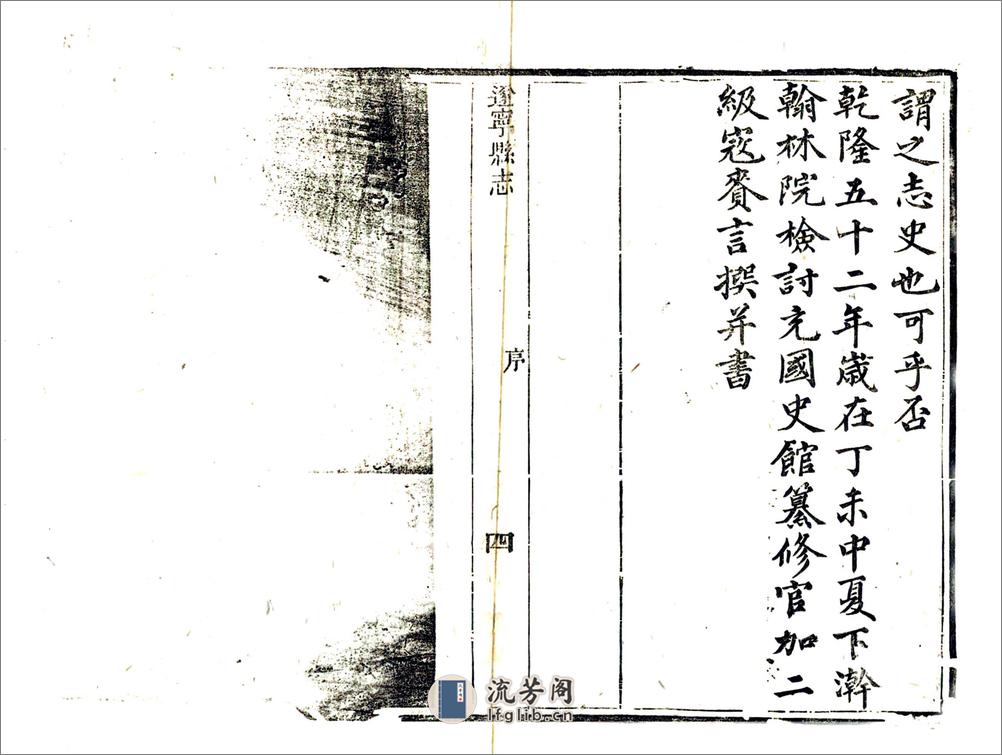 謂之志史也可乎否
乾隆五十二年歲在丁未中夏下澣
翰林院檢討充國史館纂修官加二
級寇賚言撰并書
遂寧縣志
序
四
流芳阁
lfglib.cn